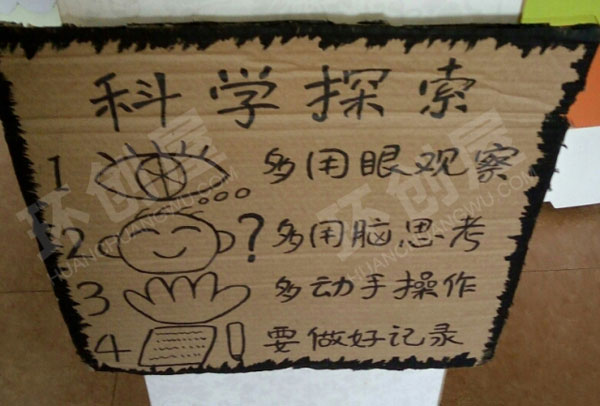 科学探索
1 多用眼观察
2 ? 多用脑思考
3 多动手操作
4 要做好记录
环创屋
HUANCHUANGWU.COM
环创屋
HUANCHUANGWU.COM